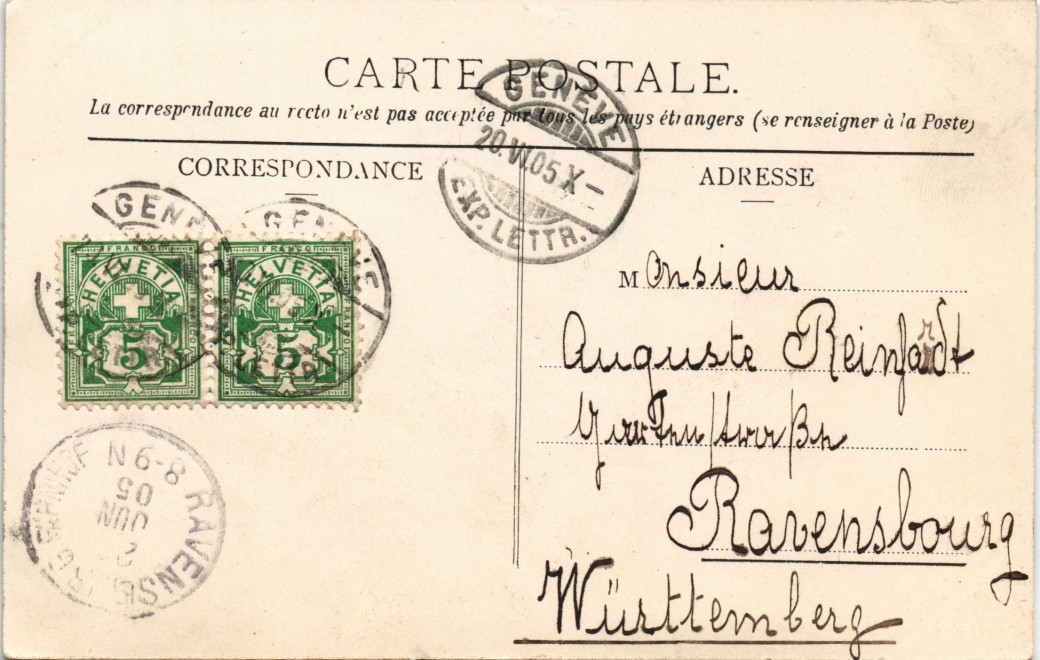 CARTE POSTALE.
La correspondance au recto n'est pas acceptée par tous les pays étrangers (se renseigner à la Poste)
CORRESPONDANCE
ADRESSE
GENÈVE
20.VI.05.X–
EXP. LETTR.
GENÈVE
GENÈVE
FRANCO
HELVETIA
5
FRANCO
HELVETIA
5
Monsieur
Auguste Reinhardt
Gartenstraße
Ravensbourg
Württemberg
RAVENSBURG BAHNHOF
N 6-8
05
JUN